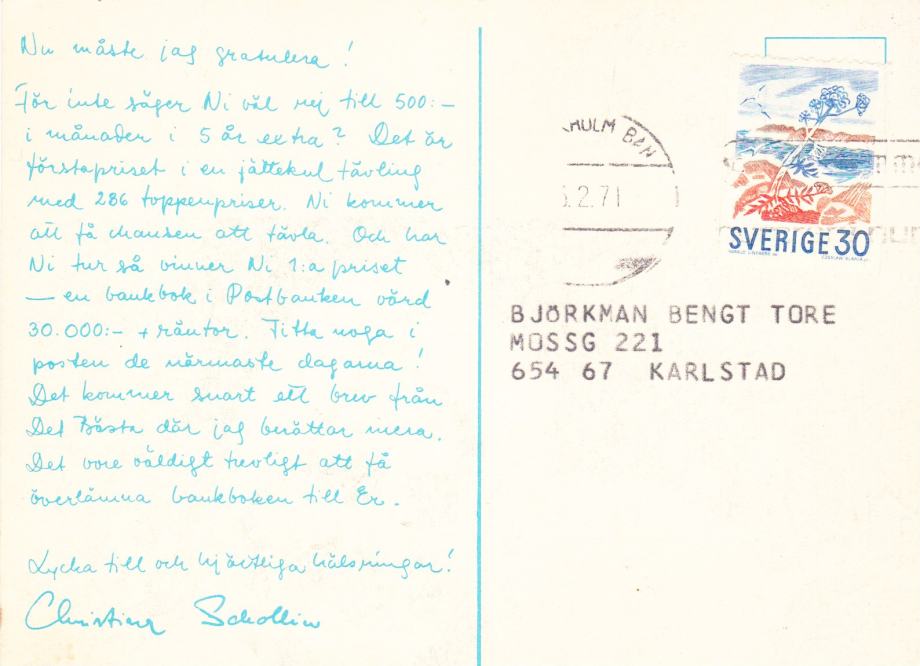 Nu måste jag gratulera!
För inte säger Ni väl nej till 500:-
i månaden i 5 år extra? Det är
förstapriset i en jättekul tävling
med 286 toppenpriser. Ni kommer
att få chansen att tävla. Och har
Ni tur så vinner Ni 1:a priset
— en bankbok i Postbanken värd
30.000:- + räntor. Titta noga i
posten de närmaste dagarna!
Det kommer snart ett brev från
Det Bästa där jag berättar mera.
Det vore väldigt trevligt att få
överlämna bankboken till Er.
Lycka till och hjärtliga hälsningar!
Christina Schollin
HOLM BAN
5.2.71
SVERIGE 30
BJÖRKMAN BENGT TORE
MOSSG 221
654 67 KARLSTAD